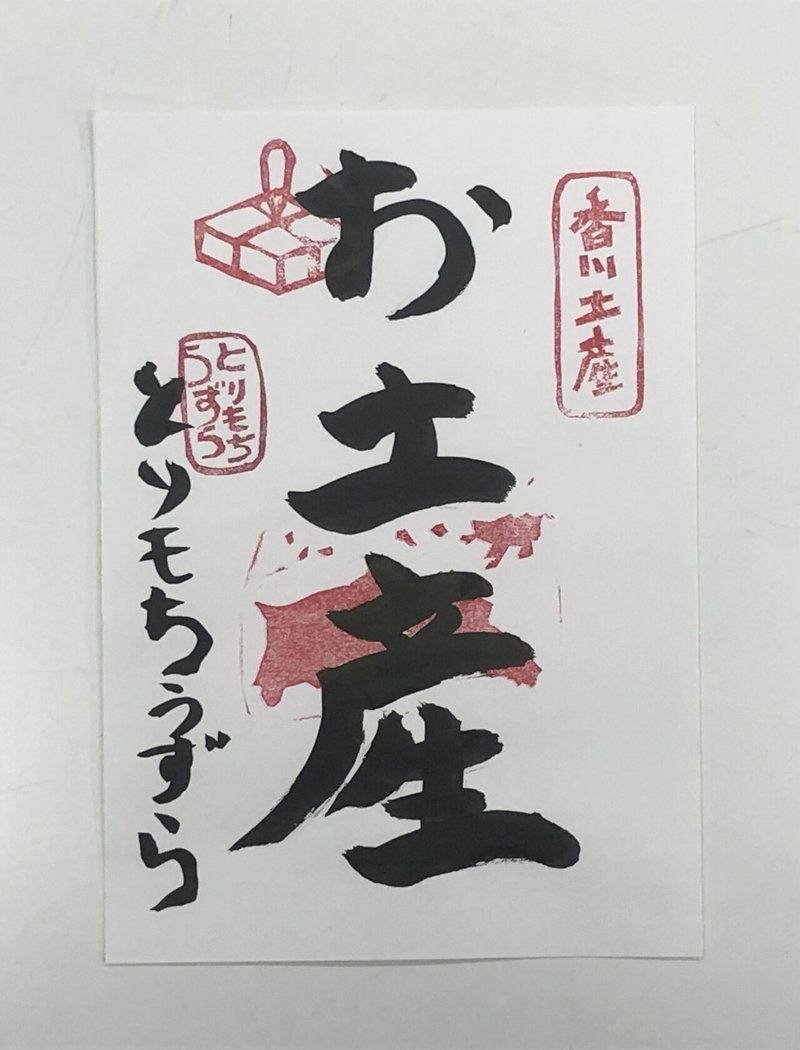 香川土産
お土産
とりもち
うずら
とりもちうずら